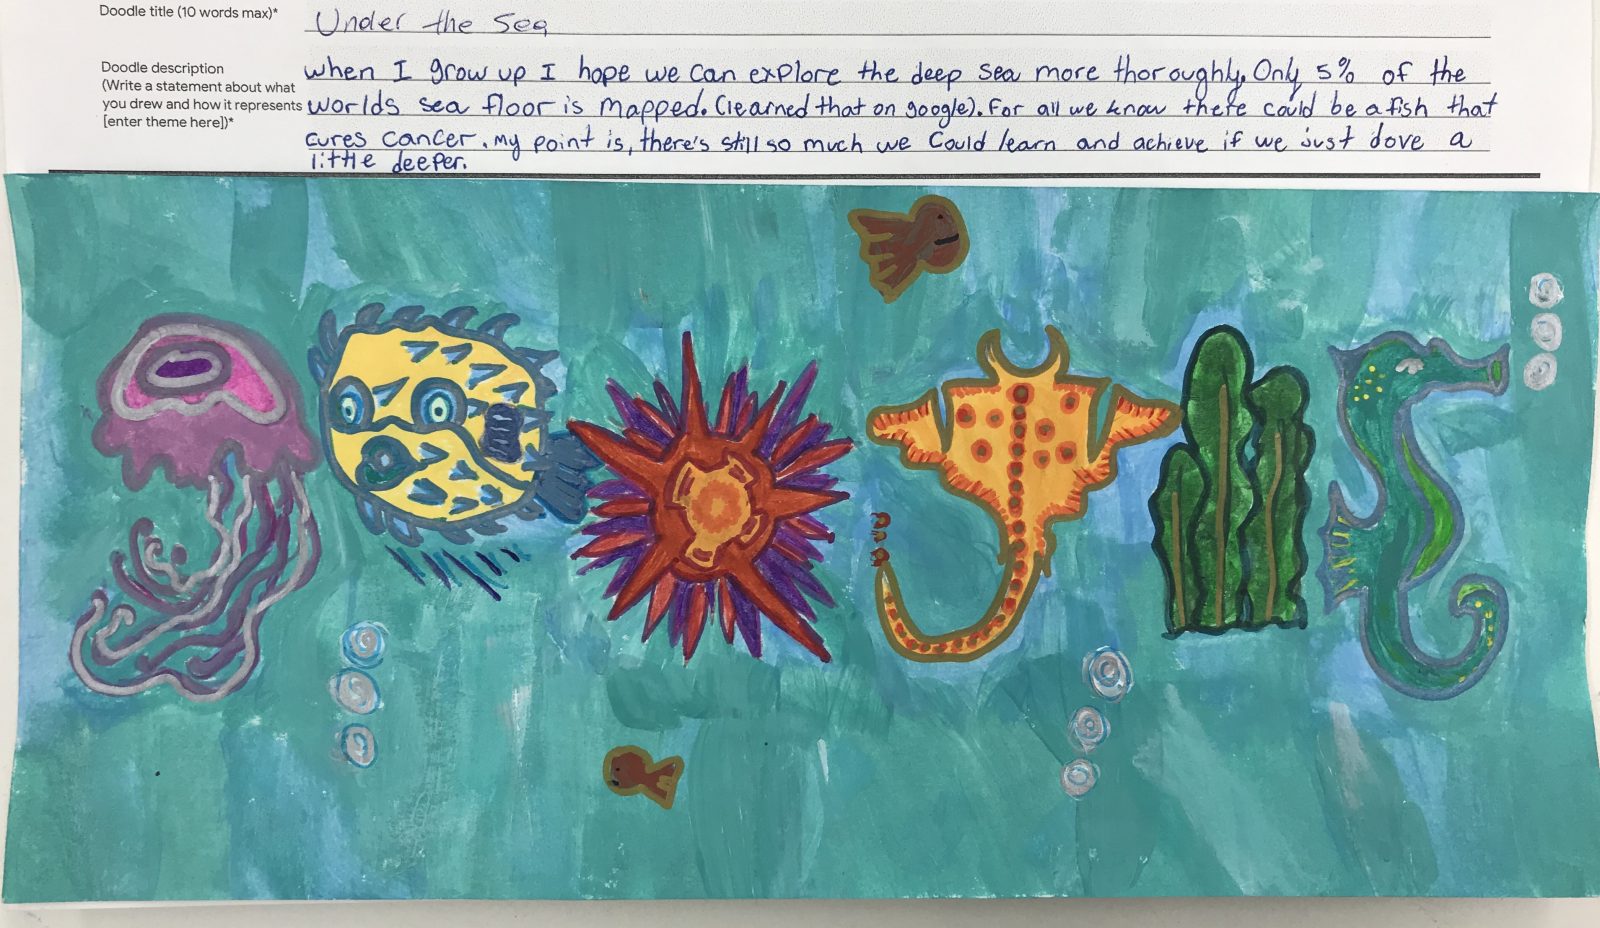 Doodle title (10 words max)*
Under the Sea
Doodle description
(Write a statement about what
you drew and how it represents
[enter theme here])*
when I grow up I hope we can explore the deep sea more thoroughly. Only 5% of the
worlds sea floor is mapped. (learned that on google). For all we know there could be a fish that
cures cancer. my point is, there's still so much we could learn and achieve if we just dove a
little deeper.